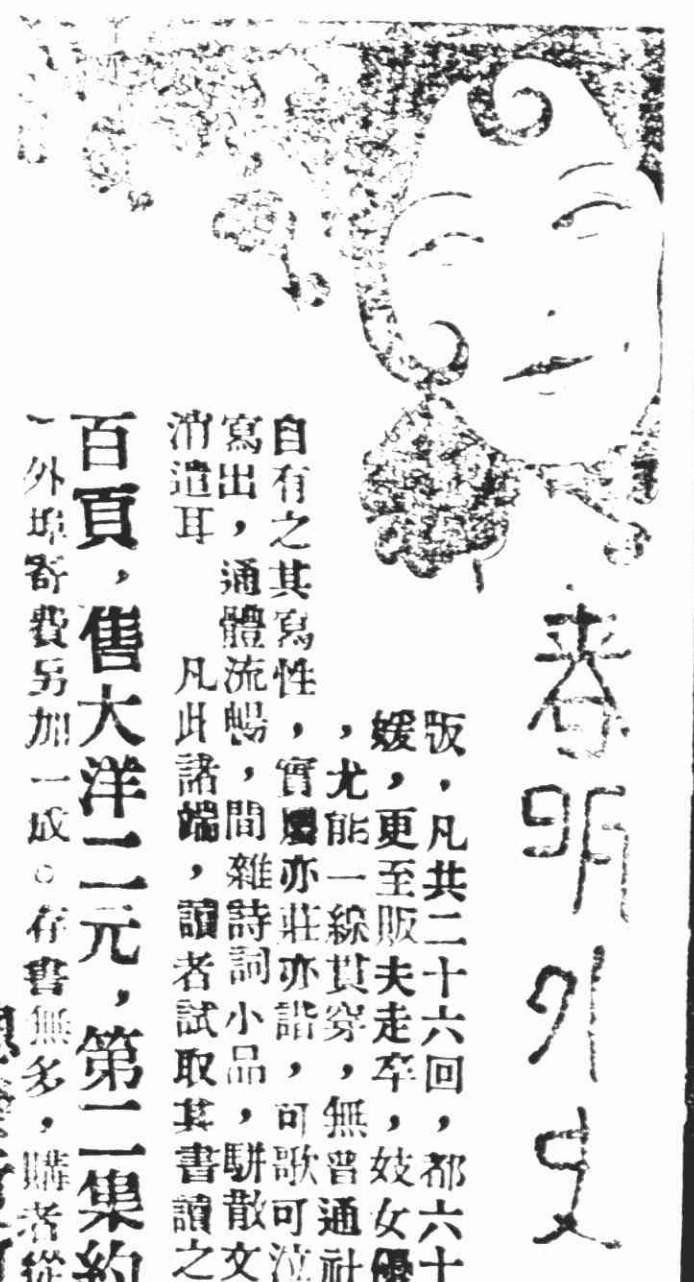 春明外史
版，凡共二十六回，都六十
媛，更至販夫走卒，妓女優
，尤能一綜貫穿，無普通社
自有之其寫性，實屬亦莊亦諧，可歌可泣
寫出，通體流暢，間雜詩詞小品，駢散文
消遣耳　凡此諸端，讀者試取其書讀之
百頁，售大洋二元，第二集約
外埠寄費另加一成。存書無多，購者從